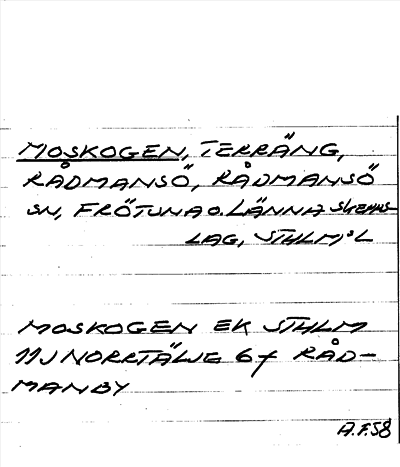 MOSKOGEN, TERRÄNG,
RÅDMANSÖ, RÅDMANSÖ
SN, FRÖTUNA O. LÄNNA SKEPPS
LAG, STHLM:S L
MOSKOGEN EK STHLM
11J NORRTÄLJE 6f RÅD-
MANBY
A.F.58